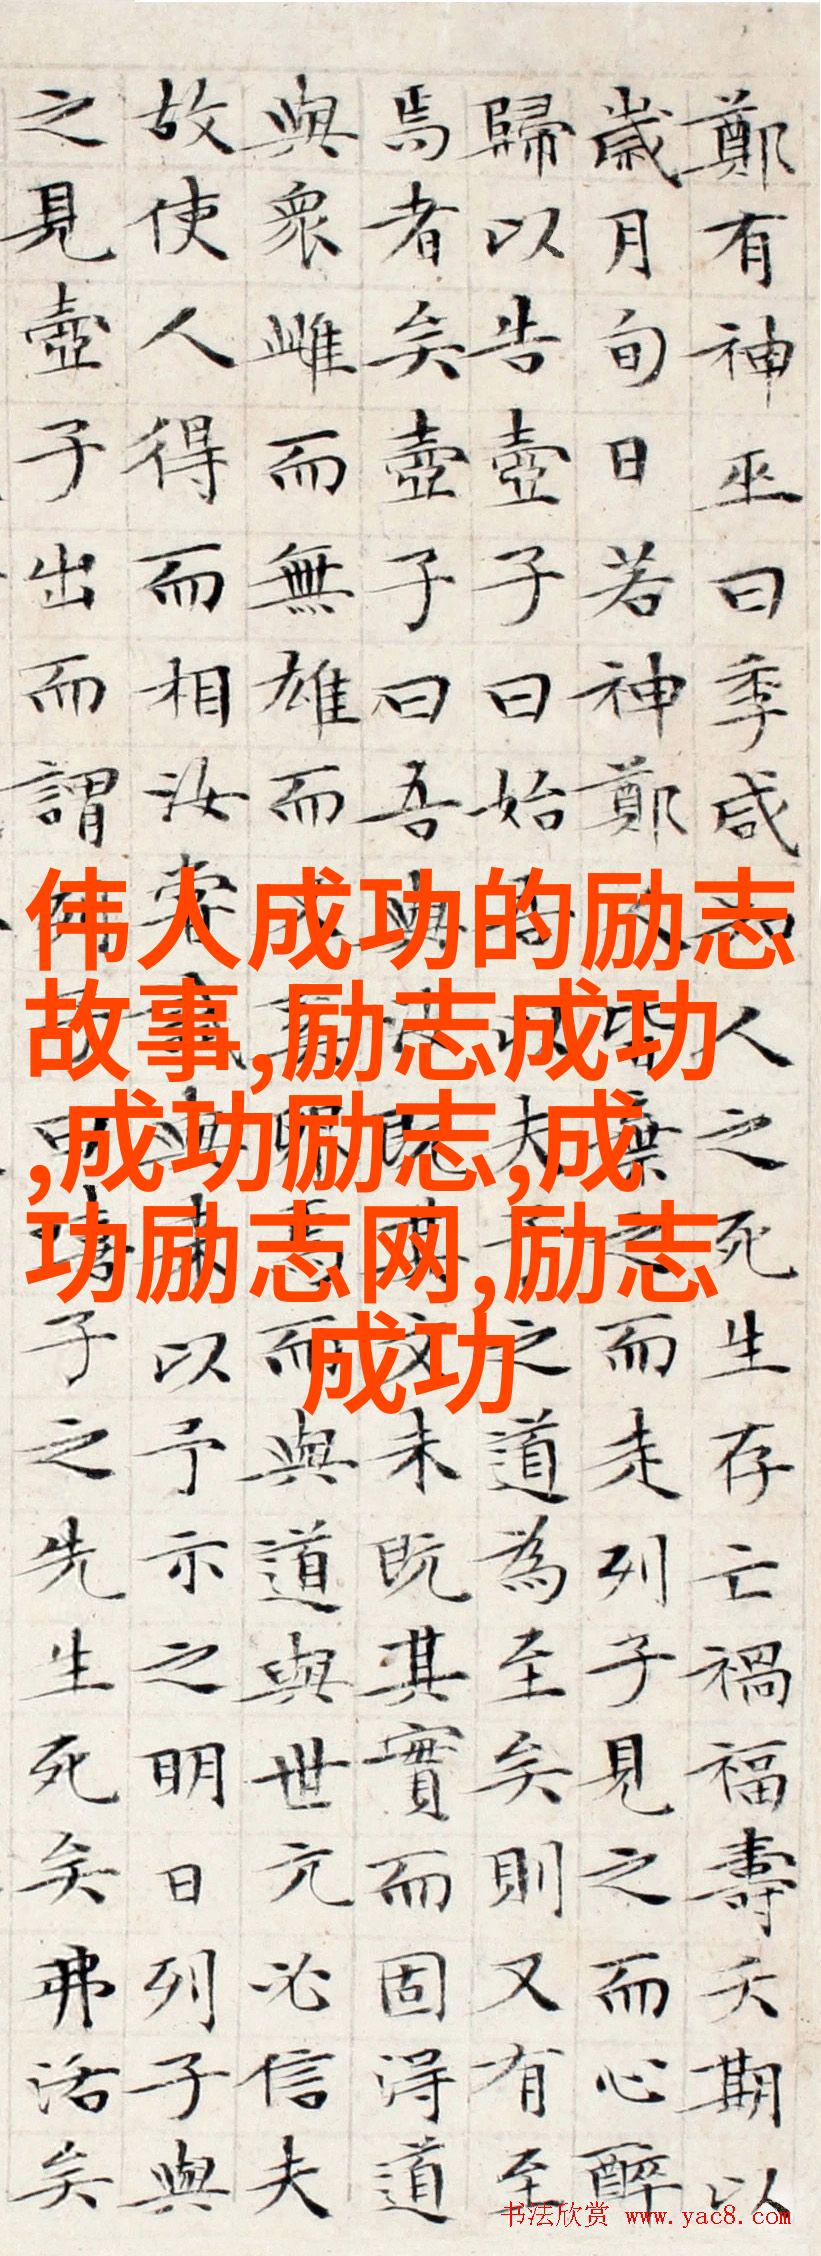 鄭有神巫曰季咸知人之死生存亡禍福壽夭期以
歲月旬日若神鄭人皆棄之而走列子見之而心醉
歸以告壺子曰始吾以夫子之道為至矣則又有至
焉者矣壺子曰吾與汝既其文未既其實而固得道
與衆雌而無雄而又奚卵焉而與道與世亢必信夫
故使人得而相汝嘗試與來以予示之明日列子與
之見壺子出而謂列子曰嘻子之先生死矣弗活矣
伟人成功的励志
故事,励志成功
,成功励志,成
功励志网,励志
成功
书法欣赏 www.yac8.com